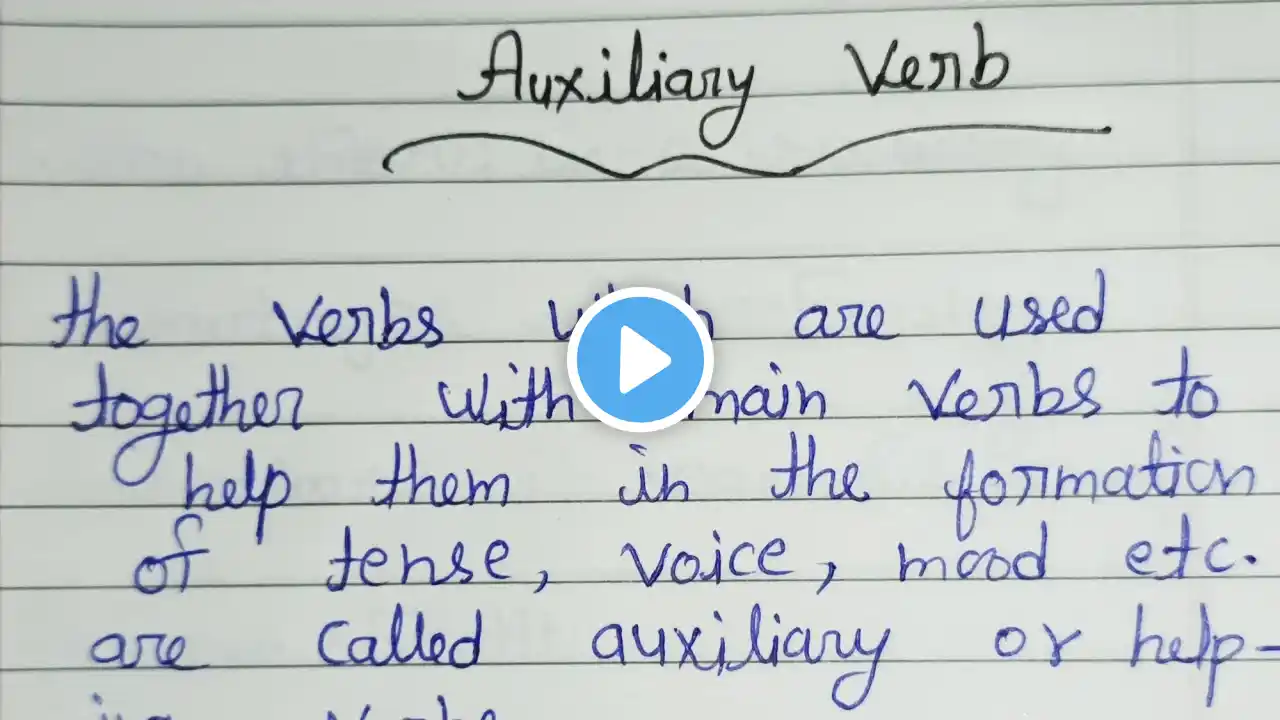 Auxiliary Verb
the verbs which are used
together with main verbs to
help them in the formation
of tense, voice, mood etc.
are called auxiliary or help-
ing verbs